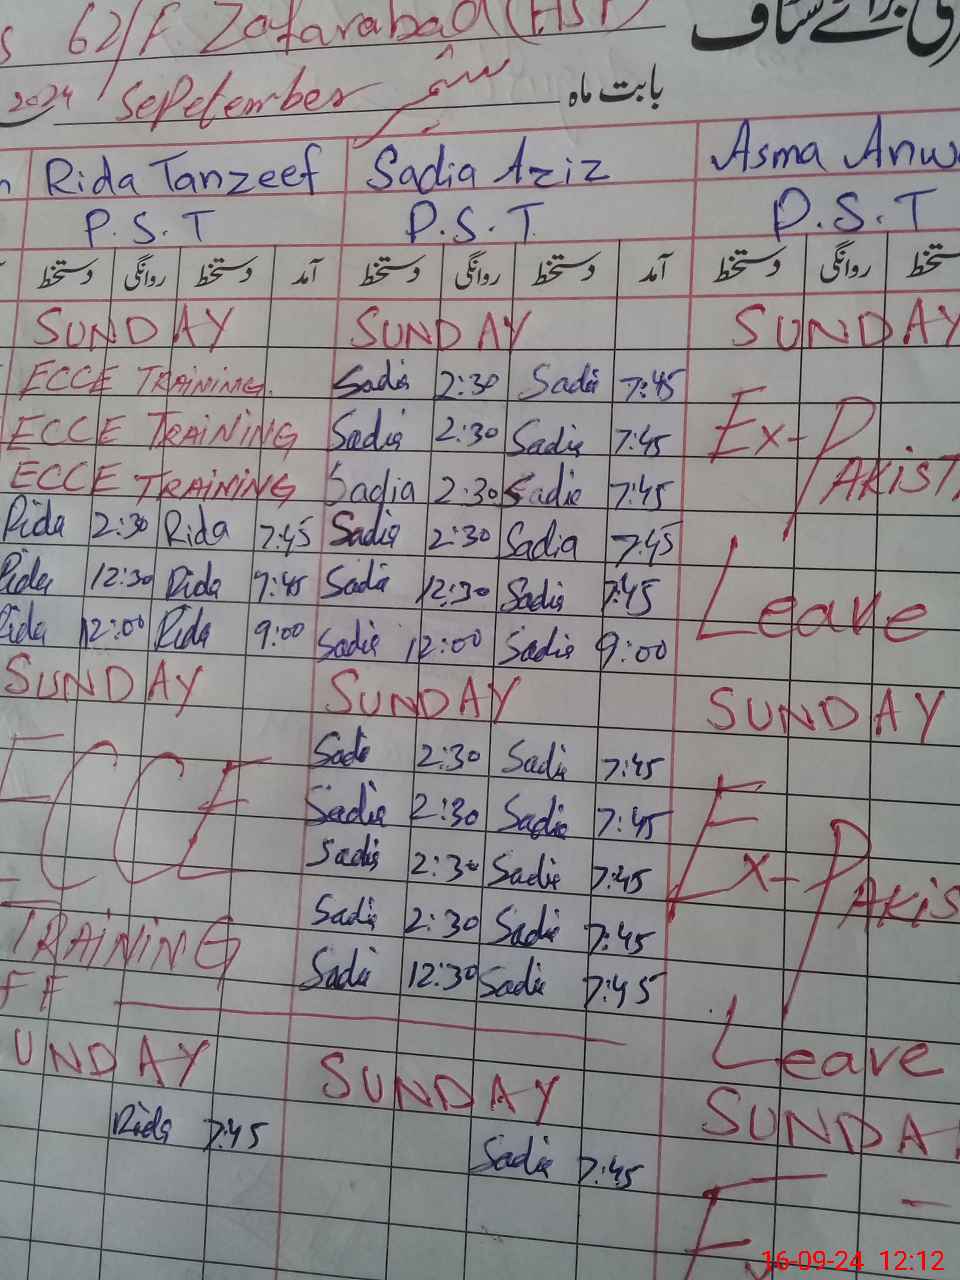 62/F Zafarabad (HSP)
برائے سٹاف
2024 Sepetember ستمبر بابت ماہ
Rida Tanzeef Sadia Aziz Asma Anw
P.S.T P.S.T P.S.T
دستخط روانگی دستخط آمد دستخط روانگی دستخط آمد دستخط روانگی تخط
SUNDAY SUNDAY SUNDAY
ECCE TRAINING. Sadia 2:30 Sadia 7:45
ECCE TRAINING Sadia 2:30 Sadia 7:45 Ex-PAKIST
ECCE TRAINING Sadia 2:30 Sadia 7:45
Rida 2:30 Rida 7:45 Sadia 2:30 Sadia 7:45
Rida 12:30 Rida 7:45 Sadia 12:30 Sadia 7:45 Leave
Rida 12:00 Rida 9:00 Sadia 12:00 Sadia 9:00
SUNDAY SUNDAY SUNDAY
Sadia 2:30 Sadia 7:45
ECCE Sadia 2:30 Sadia 7:45
Sadia 2:30 Sadia 7:45 Ex-PAKIS
TRAINING Sadia 2:30 Sadia 7:45
Sadia 12:30 Sadia 7:45
Leave
UNDAY SUNDAY SUNDA
Rida 7:45 Sadia 7:45
16-09-24 12:12